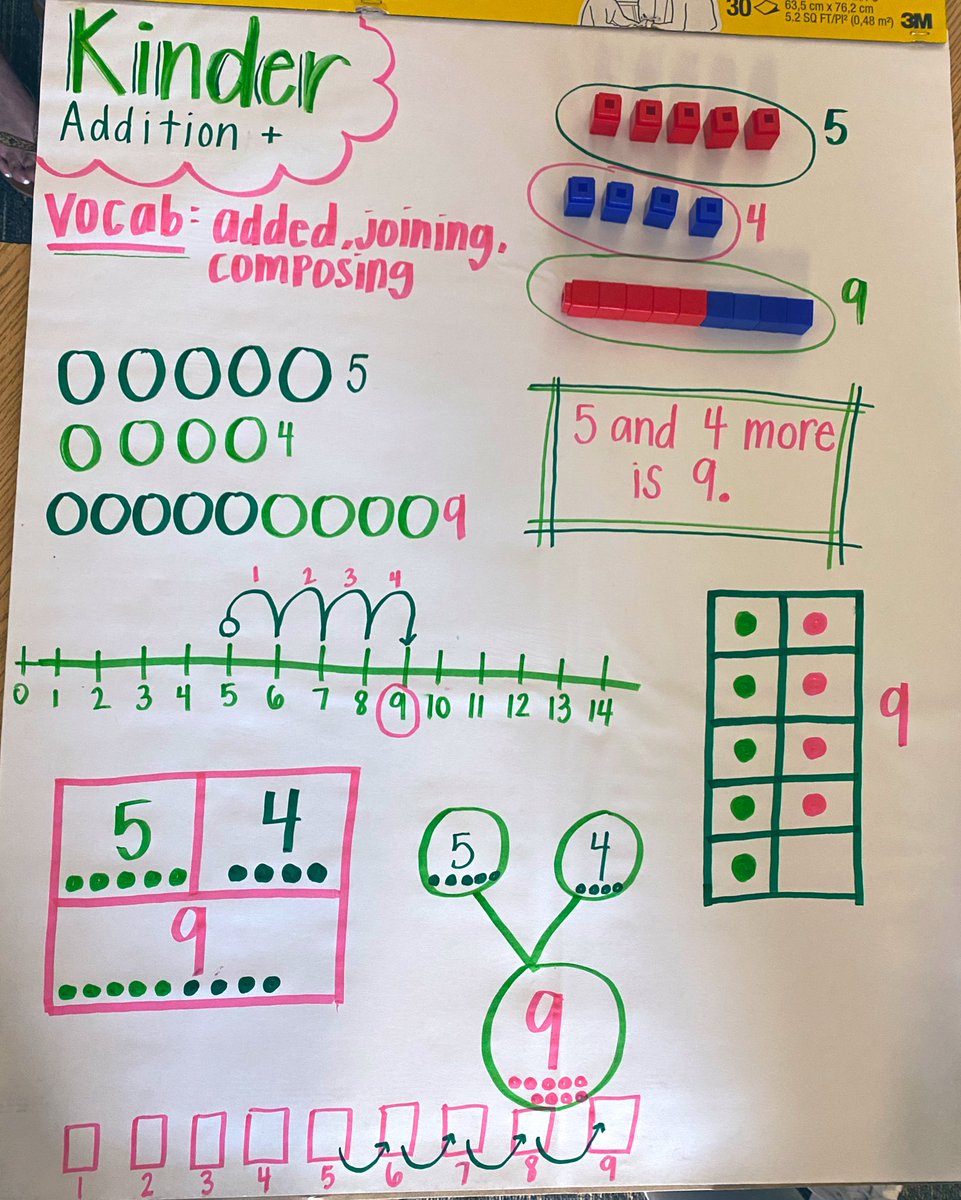 30 63,5 cm x 76,2 cm
5.2 SQ FT/PI² (0,48 m²) 3M
Kinder
Addition +
Vocab: added, joining,
composing
5
4
9
00000 5
0000 4
000000000 9
5 and 4 more
is 9.
1 2 3 4
0 1 2 3 4 5 6 7 8 9 10 11 12 13 14
9
5 4
9
5 4
9
1 2 3 4 5 6 7 8 9